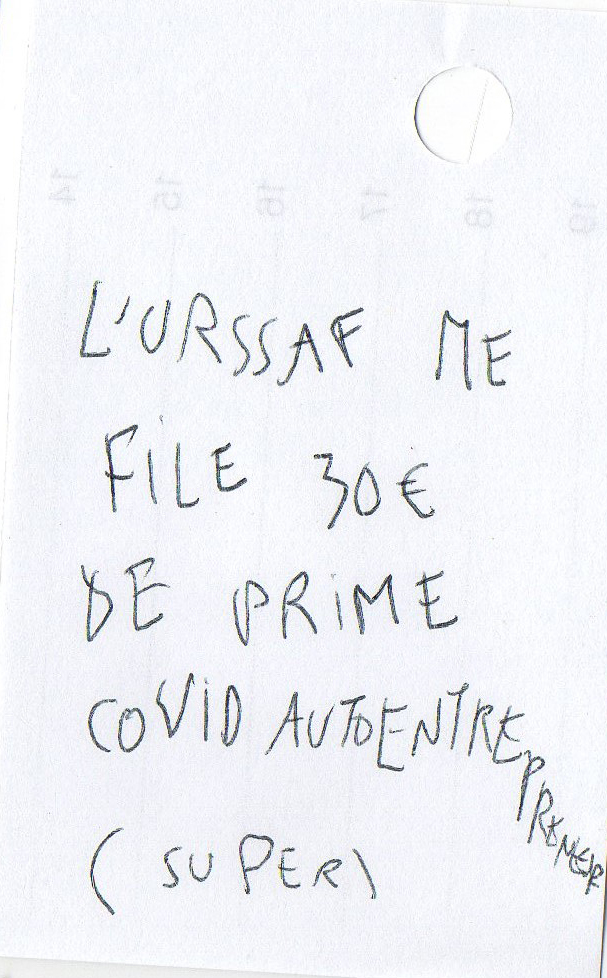 14 15 16 17 18 19
L'URSSAF ME
FiLE 30€
DE PRiME
COViD AUTOENTREPRENEUR
(SUPER)